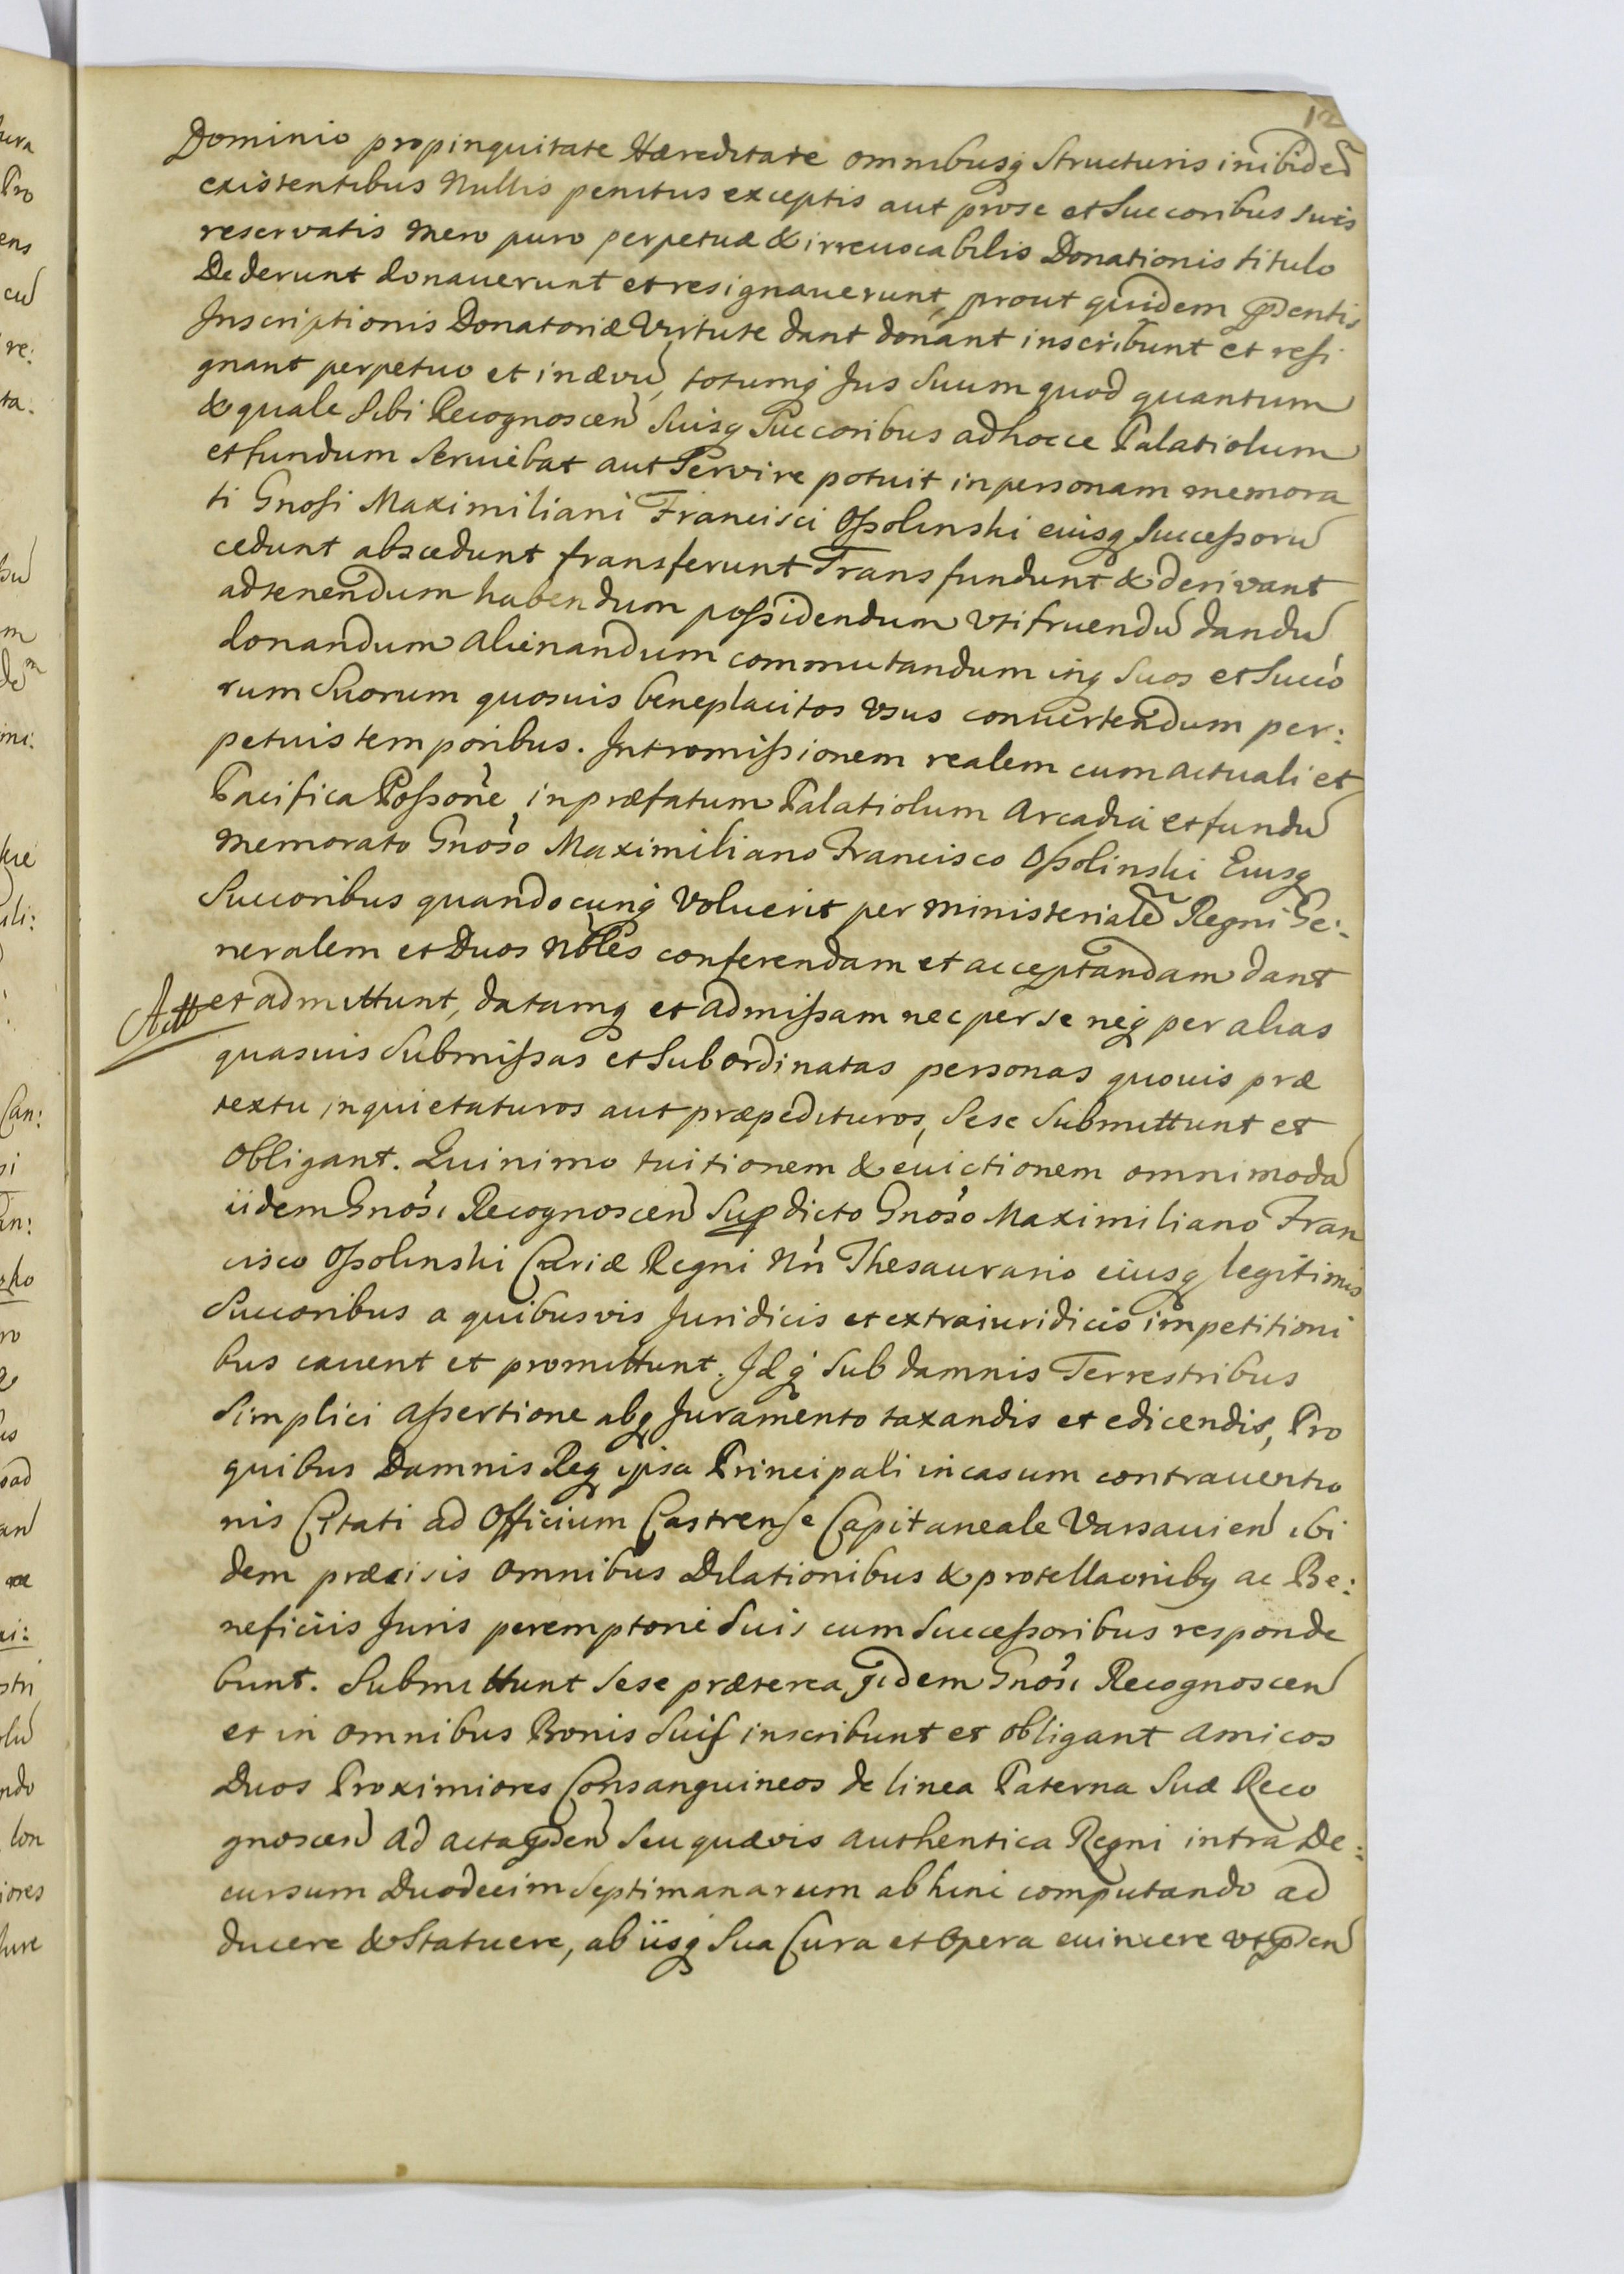 12
Dominio propinquitate Hæreditate omnibusq Structuris inibidē
existentibus Nullis penitus exceptis aut prose et Succoribus suis
reservatis Mero puro perpetuæ & irreuocabilis Donationis titulo
Dederunt donauerunt et resignauerunt, prout quidem p̄dentis
Inscriptionis Donatoriæ Virtute dant donant inscribunt et resi
gnant perpetuo et in ævū, totumq Jus Suum quod quantum
& quale Sibi Recognoscen̄ Suisq Succoribus ad hocce Palatiolum
et fundum Seruiebat aut Servire potuit in personam memora
ti Gnosi Maximiliani Francisci Oßolinski eiusq Succeßorū
cedunt abscedunt transferunt Transfundunt & derivant
ad tenendum habendum poßidendum Vti fruendū dandū
donandum Alienandum commutandum inq Suos et Succo
rum Suorum quosuis beneplacitos Vsus conuertendum per:
petuis temporibus. Intromißionem realem cum actuali et
Pacifica Poßone in præfatum Palatiolum Arcadia et fundū
Memorato Gnoso Maximiliano Francisco Oßolinski Eiusq
Succoribus quandocunq Voluerit per Ministerialē Regni Ge:
neralem et Duos Nbles conferendam et acceptandam dant
Att et admittunt, datamq et admißam nec per se neq per alias
quasuis Submißas et Subordinatas personas quouis præ
textu inquietaturos aut præpedituros, Sese Submittunt et
Obligant. Quinimo tuitionem & euictionem omnimodā
iidem Gnosi Recognoscen̄ Supdicto Gnoso Maximiliano Fran
cisco Oßolinski Curiæ Regni Nri Thesaurario eiusq legitimis
Succoribus a quibusvis Juridicis et extraiuridicis impetitioni
bus cauent et promittunt. Idq Sub damnis Terrestribus
Simplici Aßertione absq Juramento taxandis et edicendis, Pro
quibus Damnis Req ipsa Principali in casum contrauentio
nis Citati ad Officium Castrense Capitaneale Varsauien̄ ibi
dem præcisis Omnibus Dilationibus & protellaonibq ac Be:
neficiis Juris peremptorie Suis cum Succeßoribus responde
bunt. Submittunt Sese præterea iidem Gnosi Recognoscen̄
et in Omnibus Bonis Suis inscribunt et Obligant Amicos
Duos Proximiores Consanguineos de linea Paterna Suæ Reco
gnoscen̄ Ad acta p̄den̄ Seu quævis Authentica Regni intra De:
cursum Duodecim Septimanarum ab hinc computando ad
ducere & Statuere, ab iisq Sua Cura et Opera euincere vt p̄den̄